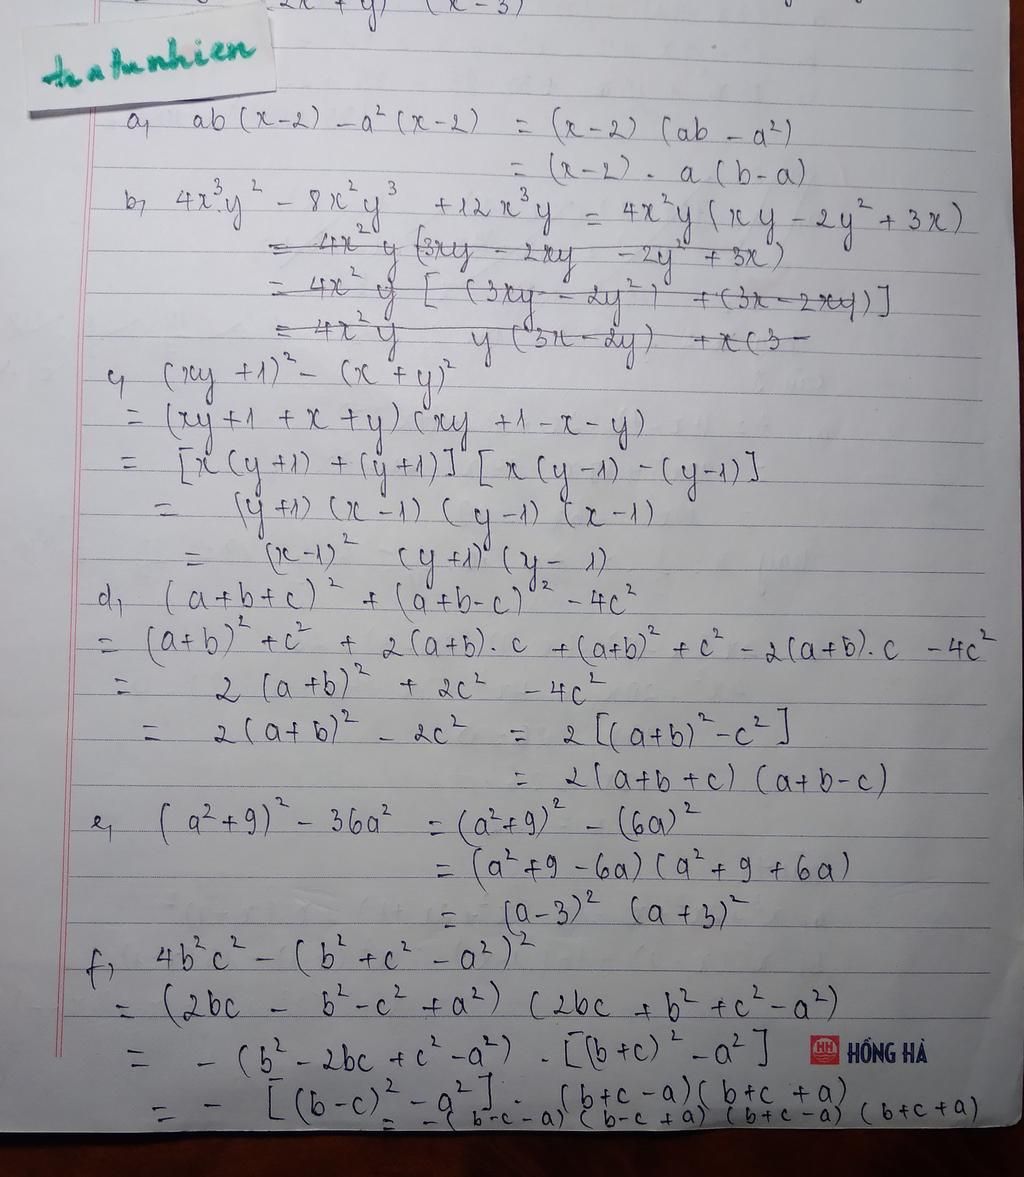 2x + y) (x - 3)
tratunhien
a, ab (x-2) - a² (x-2) = (x-2) (ab - a²)
= (x-2) . a (b-a)
b, 4x³y² - 8x²y³ + 12x³y = 4x²y (xy - 2y² + 3x)
= 4x²y (3xy - 2xy - 2y² + 3x)
= 4x²y [(3xy - 2y²) + (3x - 2xy)]
= 4x²y y (3x - 2y) + x (3 -
c, (xy + 1)² - (x + y)²
= (xy + 1 + x + y) (xy + 1 - x - y)
= [x (y+1) + (y+1)] [x (y-1) - (y-1)]
= (y+1) (x-1) (y-1) (x-1)
= (x-1)² (y+1) (y-1)
d, (a+b+c)² + (a+b-c)² - 4c²
= (a+b)² + c² + 2(a+b).c + (a+b)² + c² - 2(a+b).c - 4c²
= 2 (a+b)² + 2c² - 4c²
= 2(a+b)² - 2c² = 2 [(a+b)² - c²]
= 2(a+b+c) (a+b-c)
e, (a²+9)² - 36a² = (a²+9)² - (6a)²
= (a²+9 - 6a) (a² + 9 + 6a)
= (a-3)² (a+3)²
f, 4b²c² - (b² + c² - a²)²
= (2bc - b² - c² + a²) (2bc + b² + c² - a²)
= - (b² - 2bc + c² - a²) . [(b+c)² - a²]
HH HỒNG HÀ
= - [(b-c)² - a²] . (b+c-a) (b+c+a)
= -(b-c-a) (b-c+a) (b+c-a) (b+c+a)